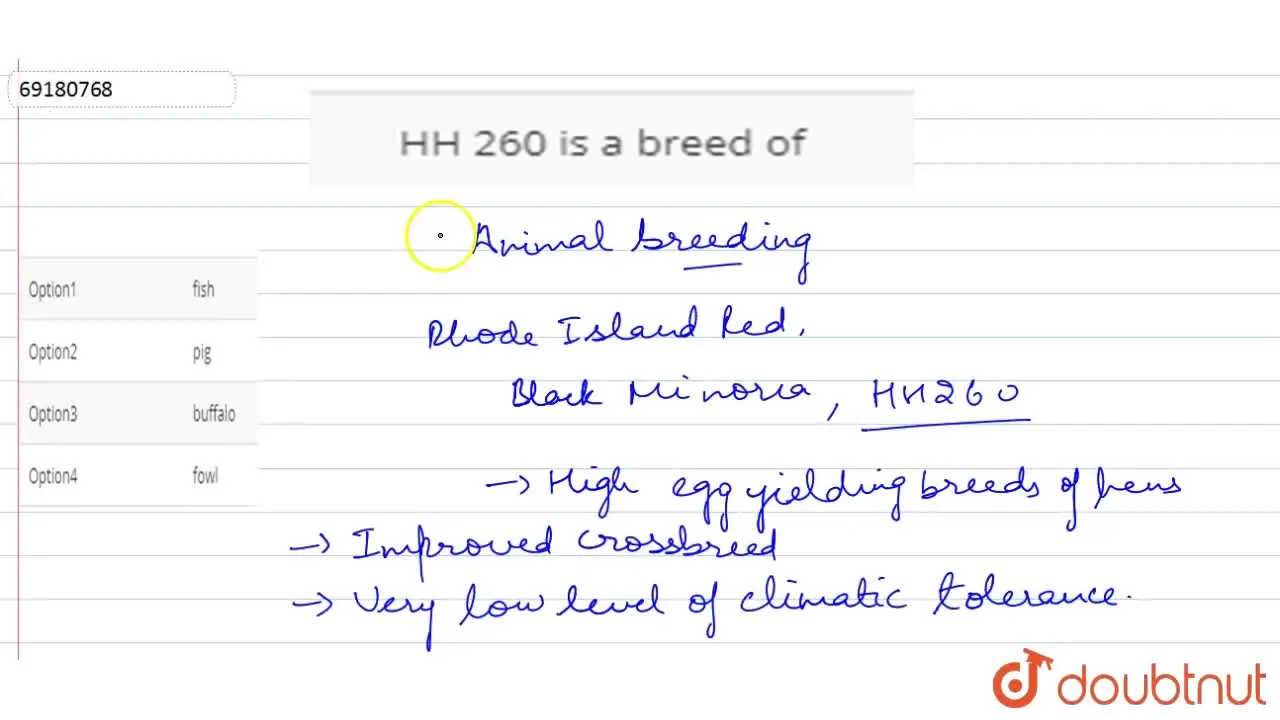 69180768
HH 260 is a breed of
Animal breeding
Rhode Island Red,
Black Minorca, HH260
→ High egg yielding breeds of hens
→ Improved crossbreed
→ Very low level of climatic tolerance.
Option1 fish
Option2 pig
Option3 buffalo
Option4 fowl
doubtnut